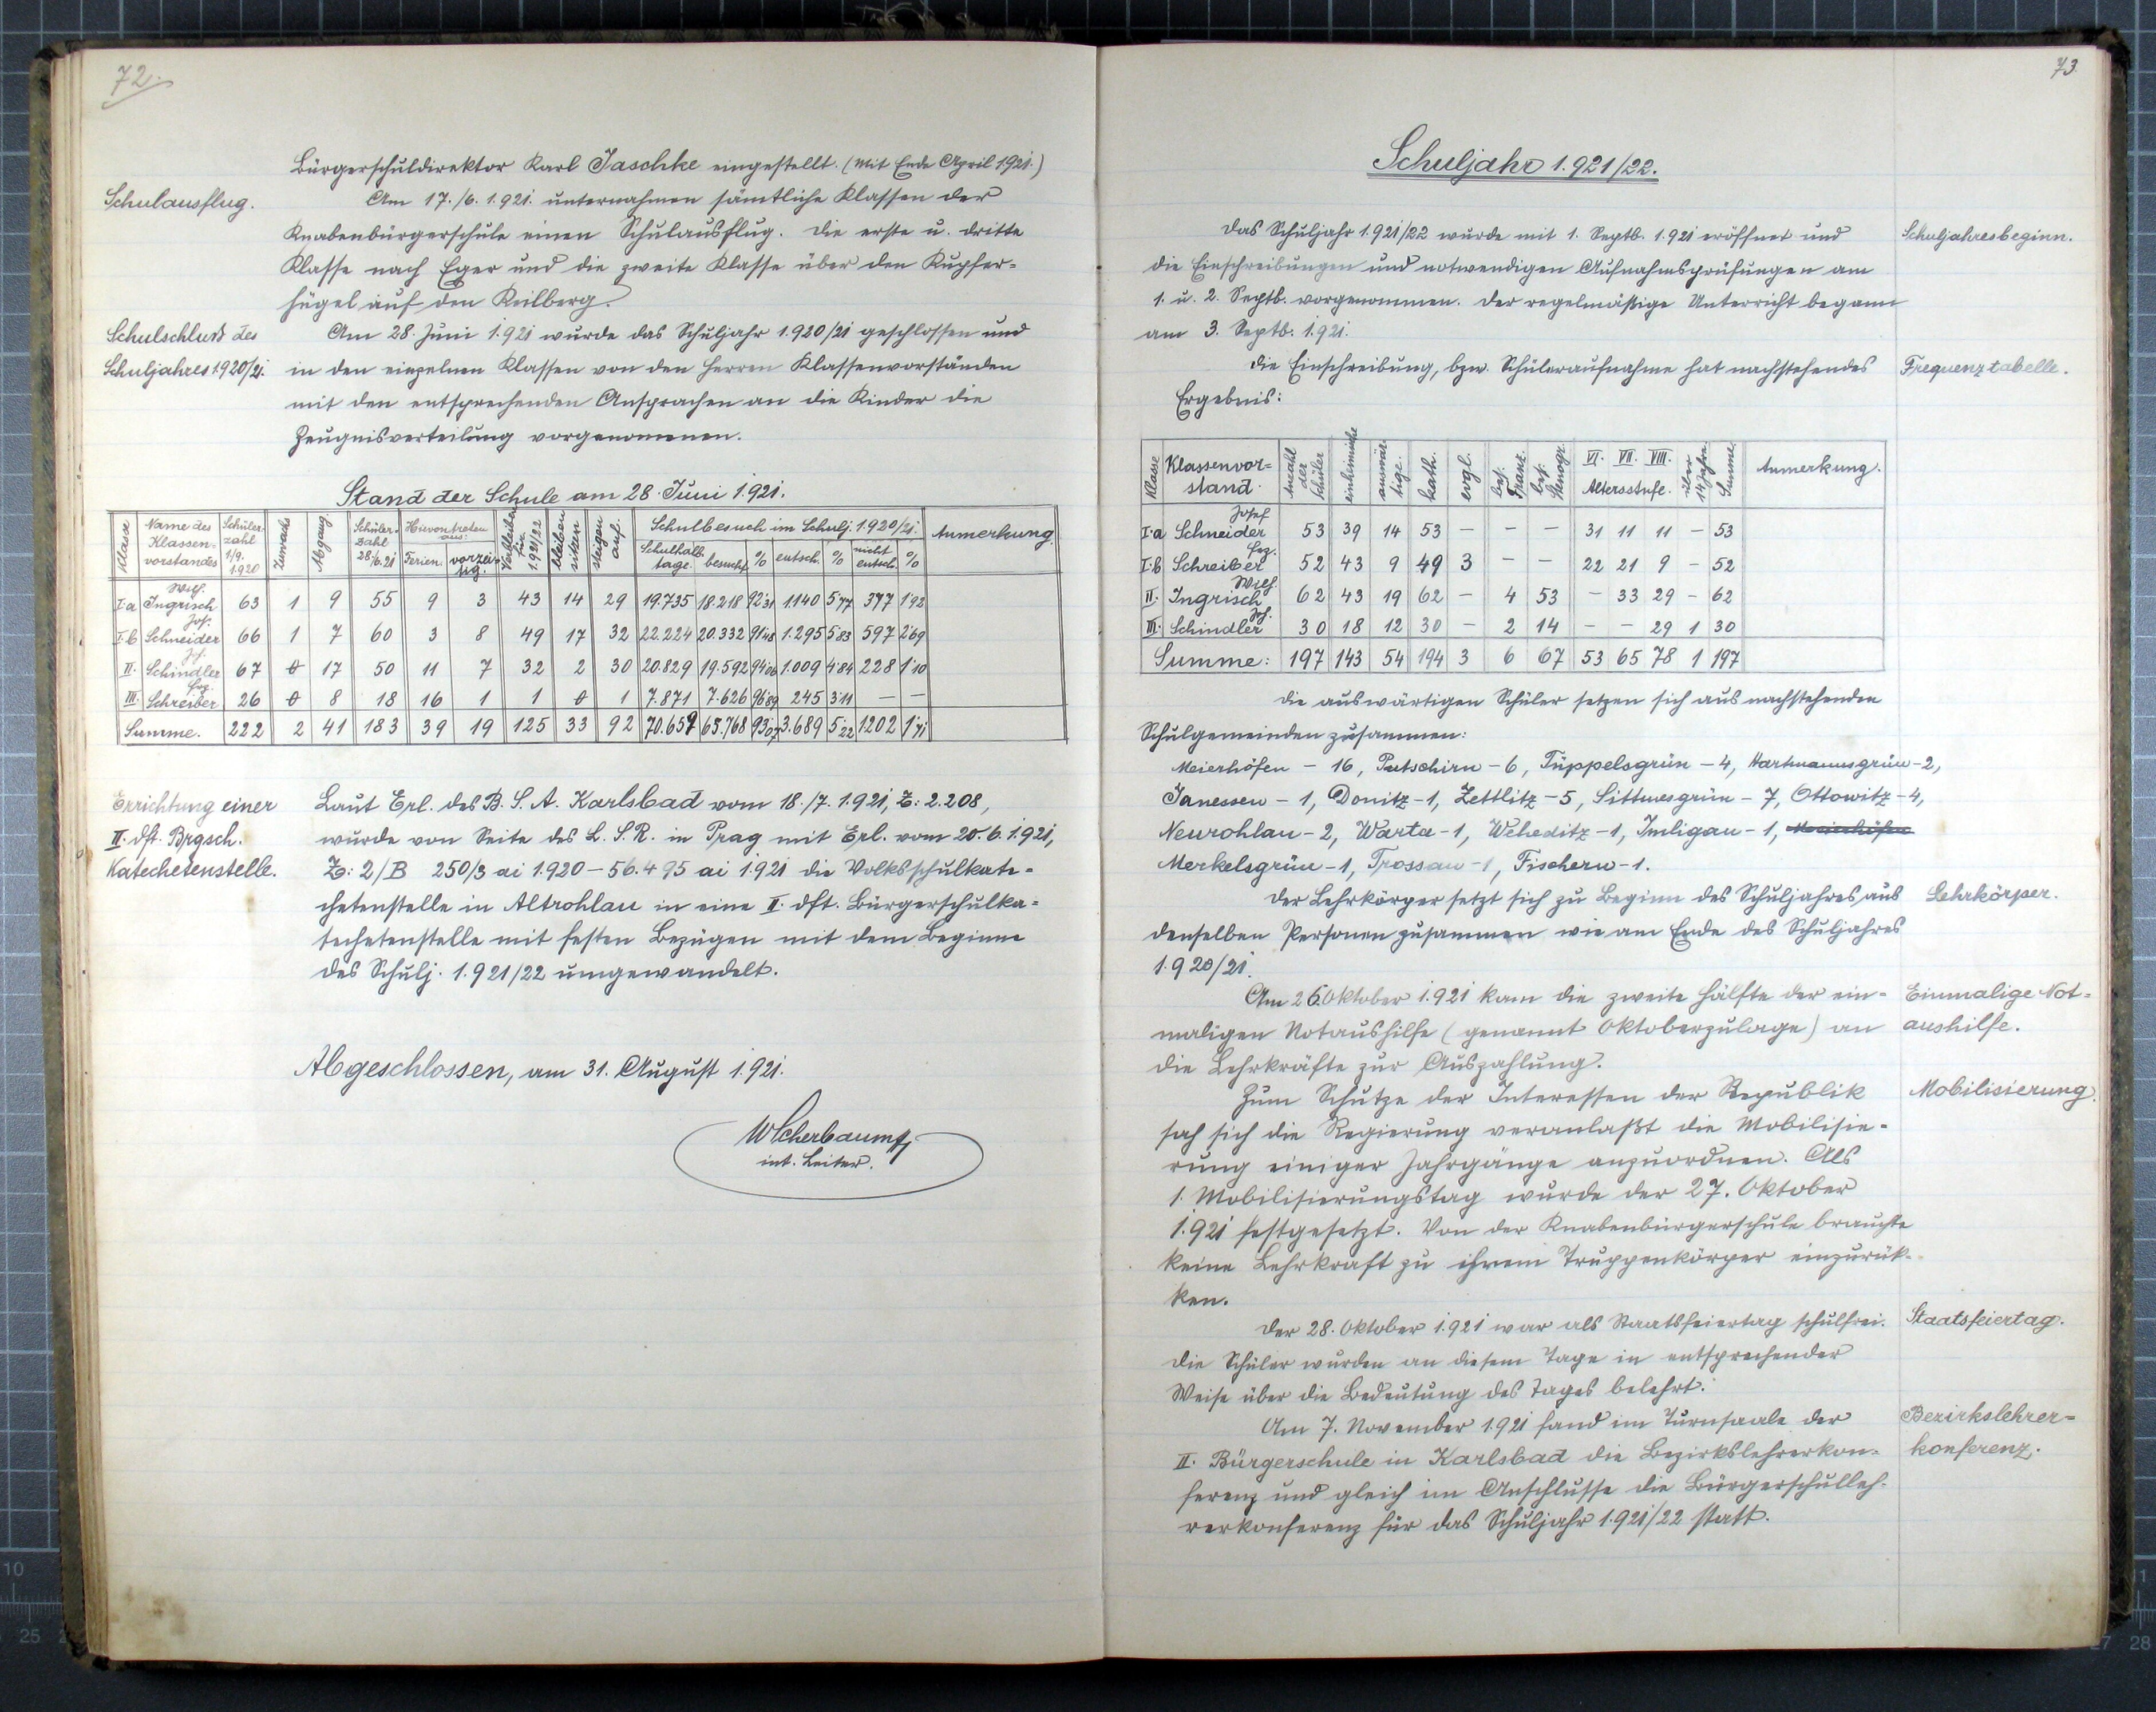 72.
Bürgerschuldirektor Karl Jaschke eingestellt. (Mit Ende April 1921.)
Schulausflug.
Am 17./6. 1.921. unternahmen sämtliche Klassen der
Knabenbürgerschule einen Schulausflug. Die erste u. dritte
Klasse nach Eger und die zweite Klasse über den Kupfer=
hügel auf den Keilberg.
Schulschluß des
Schuljahres 1.920/21.
Am 28. Juni 1.921 wurde das Schuljahr 1.920/21 geschlossen und
in den einzelnen Klassen von den Herren Klassenvorständen
mit den entsprechenden Ansprachen an die Kinder die
Zeugnisverteilung vorgenommen.
Stand der Schule am 28. Juni 1.921.
Klasse | Name des Klassen-vorstandes | Schüler-zahl 1/9. 1.920 | Zuwachs | Abgang | Schüler-zahl 28./6.21 | Hievon treten aus: Ferien. vorzei-tig. | Verbleiben für 1.921/22 | bleiben sitzen | steigen auf. | Schulbesuch im Schulj. 1.920/21. Schulhalb-tage. besucht % entsch. % nicht entsch. % | Anmerkung.
I.a Wilh. Ingrisch 63 1 9 55 9 3 43 14 29 19.735 18.218 92.31 1.140 5.77 377 1.92
I.b Jos. Schneider 66 1 7 60 3 8 49 17 32 22.224 20.332 91.48 1.295 5.83 597 2.69
II. Joh. Schindler 67 0 17 50 11 7 32 2 30 20.829 19.592 94.06 1.009 4.84 228 1.10
III. Frz. Schreiber 26 0 8 18 16 1 1 0 1 7.871 7.626 96.89 245 3.11 – –
Summe. 222 2 41 183 39 19 125 33 92 70.659 65.768 93.07 3.689 5.22 1202 1.71
Errichtung einer
II. dft. Brgsch.
Katechetenstelle.
Laut Erl. des B. S. A. Karlsbad vom 18./7. 1.921, Z: 2.208,
wurde von Seite des L. S. R. in Prag mit Erl. vom 20. 6. 1.921,
Z: 2/B 250/3 ai 1.920 – 56.495 ai 1.921 die Volksschulkate=
chetenstelle in Altrohlau in eine II. dft. Bürgerschulka=
techetenstelle mit festen Bezügen mit dem Beginne
des Schulj. 1.921/22 umgewandelt.
Abgeschlossen, am 31. August 1.921.
WScherbaum
int. Leiter.
73
Schuljahr 1.921/22.
Das Schuljahr 1.921/22 wurde mit 1. Septb. 1.921 eröffnet und
Schuljahresbeginn.
die Einschreibungen und notwendigen Aufnahmsprüfungen am
1. u. 2. Septb. vorgenommen. Der regelmäßige Unterricht begann
am 3. Septb. 1.921.
Die Einschreibung, bzw. Schüleraufnahme hat nachstehendes
Frequenztabelle.
Ergebnis:
Klasse | Klassenvor=stand. | Anzahl der Schüler | einheimische | auswär-tige. | kath. | evgl. | bes. Franz. | bes. Stenogr. | VI. VII. VIII. Altersstufe. | über 14 Jahre | Summe | Anmerkung.
I.a Josef Schneider 53 39 14 53 – – – 31 11 11 – 53
I.b Frz. Schreiber 52 43 9 49 3 – – 22 21 9 – 52
II. Wilh. Ingrisch 62 43 19 62 – 4 53 – 33 29 – 62
III. Joh. Schindler 30 18 12 30 – 2 14 – – 29 1 30
Summe: 197 143 54 194 3 6 67 53 65 78 1 197
Die auswärtigen Schüler setzen sich aus nachstehenden
Schulgemeinden zusammen:
Meierhöfen – 16, Putschirn – 6, Tüppelsgrün – 4, Hartmannsgrün – 2,
Janessen – 1, Donitz – 1, Zettlitz – 5, Sittmesgrün – 7, Ottowitz – 4,
Neurohlau – 2, Warta – 1, Weheditz – 1, Imligau – 1, Meierhöfen
Merkelsgrün – 1, Trossau – 1, Fischern – 1.
Der Lehrkörper setzt sich zu Beginn des Schuljahres aus
Lehrkörper.
denselben Personen zusammen wie am Ende des Schuljahres
1.920/21.
Am 26. Oktober 1.921 kam die zweite Hälfte der ein=
Einmalige Not=
maligen Notaushilfe (genannt Oktoberzulage) an
aushilfe.
die Lehrkräfte zur Auszahlung.
Zum Schutze der Interessen der Republik
Mobilisierung.
sah sich die Regierung veranlaßt die Mobilisie=
rung einiger Jahrgänge anzuordnen. Als
1. Mobilisierungstag wurde der 27. Oktober
1.921 festgesetzt. Von der Knabenbürgerschule brauchte
keine Lehrkraft zu ihrem Truppenkörper einzurük-
ken.
Der 28. Oktober 1.921 war als Staatsfeiertag schulfrei.
Staatsfeiertag.
Die Schüler wurden an diesem Tage in entsprechender
Weise über die Bedeutung des Tages belehrt.
Am 7. November 1.921 fand im Turnsaale der
Bezirkslehrer=
II. Bürgerschule in Karlsbad die Bezirkslehrerkon=
konferenz.
ferenz und gleich im Anschlusse die Bürgerschulleh-
rerkonferenz für das Schuljahr 1.921/22 statt.
10
25
27 28